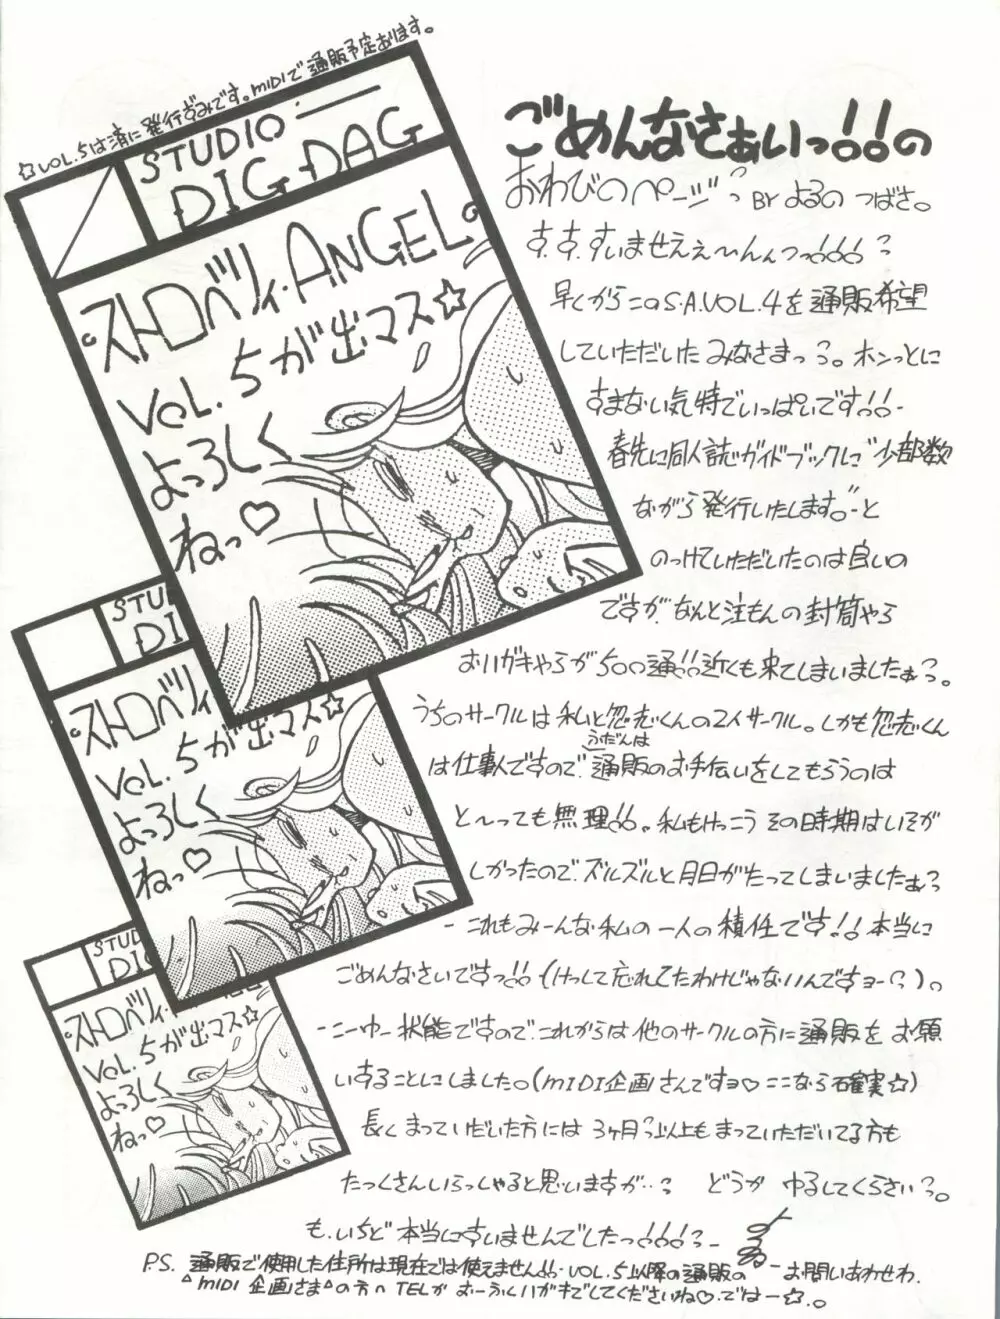 ☆VOL.5は済に発行ずみです。MIDIで通販予定あります。
STUDIO
DIG DAG
ストロベリィ・ANGEL
VOL.5が出マス☆
よっろしく
ねっ♡
ごめんなさぁいっ!!の
おわびのページ BY よるの つばさ。
す、す、すいませえぇ〜んんっっ!!!
早くからこのS.A.VOL.4を通販希望
していただいたみなさまっ。ホンっとに
すまない気持でいっぱいです!!
春先に同人誌ガイドブックに"少部数
ながら発行いたします。"と
のっけていただいたのは良いの
ですが、なんと注もんの封筒やら
おハガキやらが500通!!近くも来てしまいましたぁっ。
うちのサークルは私と怨志くんの2人サークル。しかも怨志くん
は仕事人ですので、ふだんは通販のお手伝いをしてもらうのは
と〜っても無理!!。私もけっこうその時期はいそが
しかったので、ズルズルと月日がたってしまいましたぁっ
これもみーんな私の一人の積任です!!本当に
ごめんなさいですっ!!(けっして忘れてたわけじゃないんですョー)。
こーゆー状態ですので、これからは他のサークルの方に通販をお願
いすることにしました。(MIDI企画さんですョ♡ここなら確実☆)
長くまっていだいた方には3ヶ月以上もまっていただいてる方も
たっくさんいらっしゃると思いますが…? どうか ゆるしてくらさいっ。
も、いちど本当にすいませんでしたっ!!!
P.S. 通販で使用した住所は現在では使えません!!。VOL.5以降の通販の お問いあわせわ、
"MIDI企画さま"の方へTELか おーふくハガキでしてくださいね♡、ではー☆。
STU
DI
ストロベリィ
VOL.5が出マス☆
よっろしく
ねっ♡
STUD
DIG
ストロベリィ・
VOL.5が出マス☆
よっろしく
ねっ♡